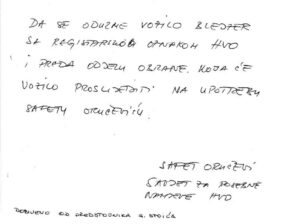 DA SE ODUZME VOZILO BLEJZER
SA REGISTARSKOM OZNAKOM HVO
I PREDA ODJELU OBRANE, KOJA ĆE
VOZILO PROSLIJEDITI NA UPOTREBU
SAFETU ORUČEVIĆU.
SAFET ORUČEVI
SAVJET ZA POSEBNE
NAMJENE HVO
DOBIVENO OD PREDSTOJNIKA B. STOJIĆA